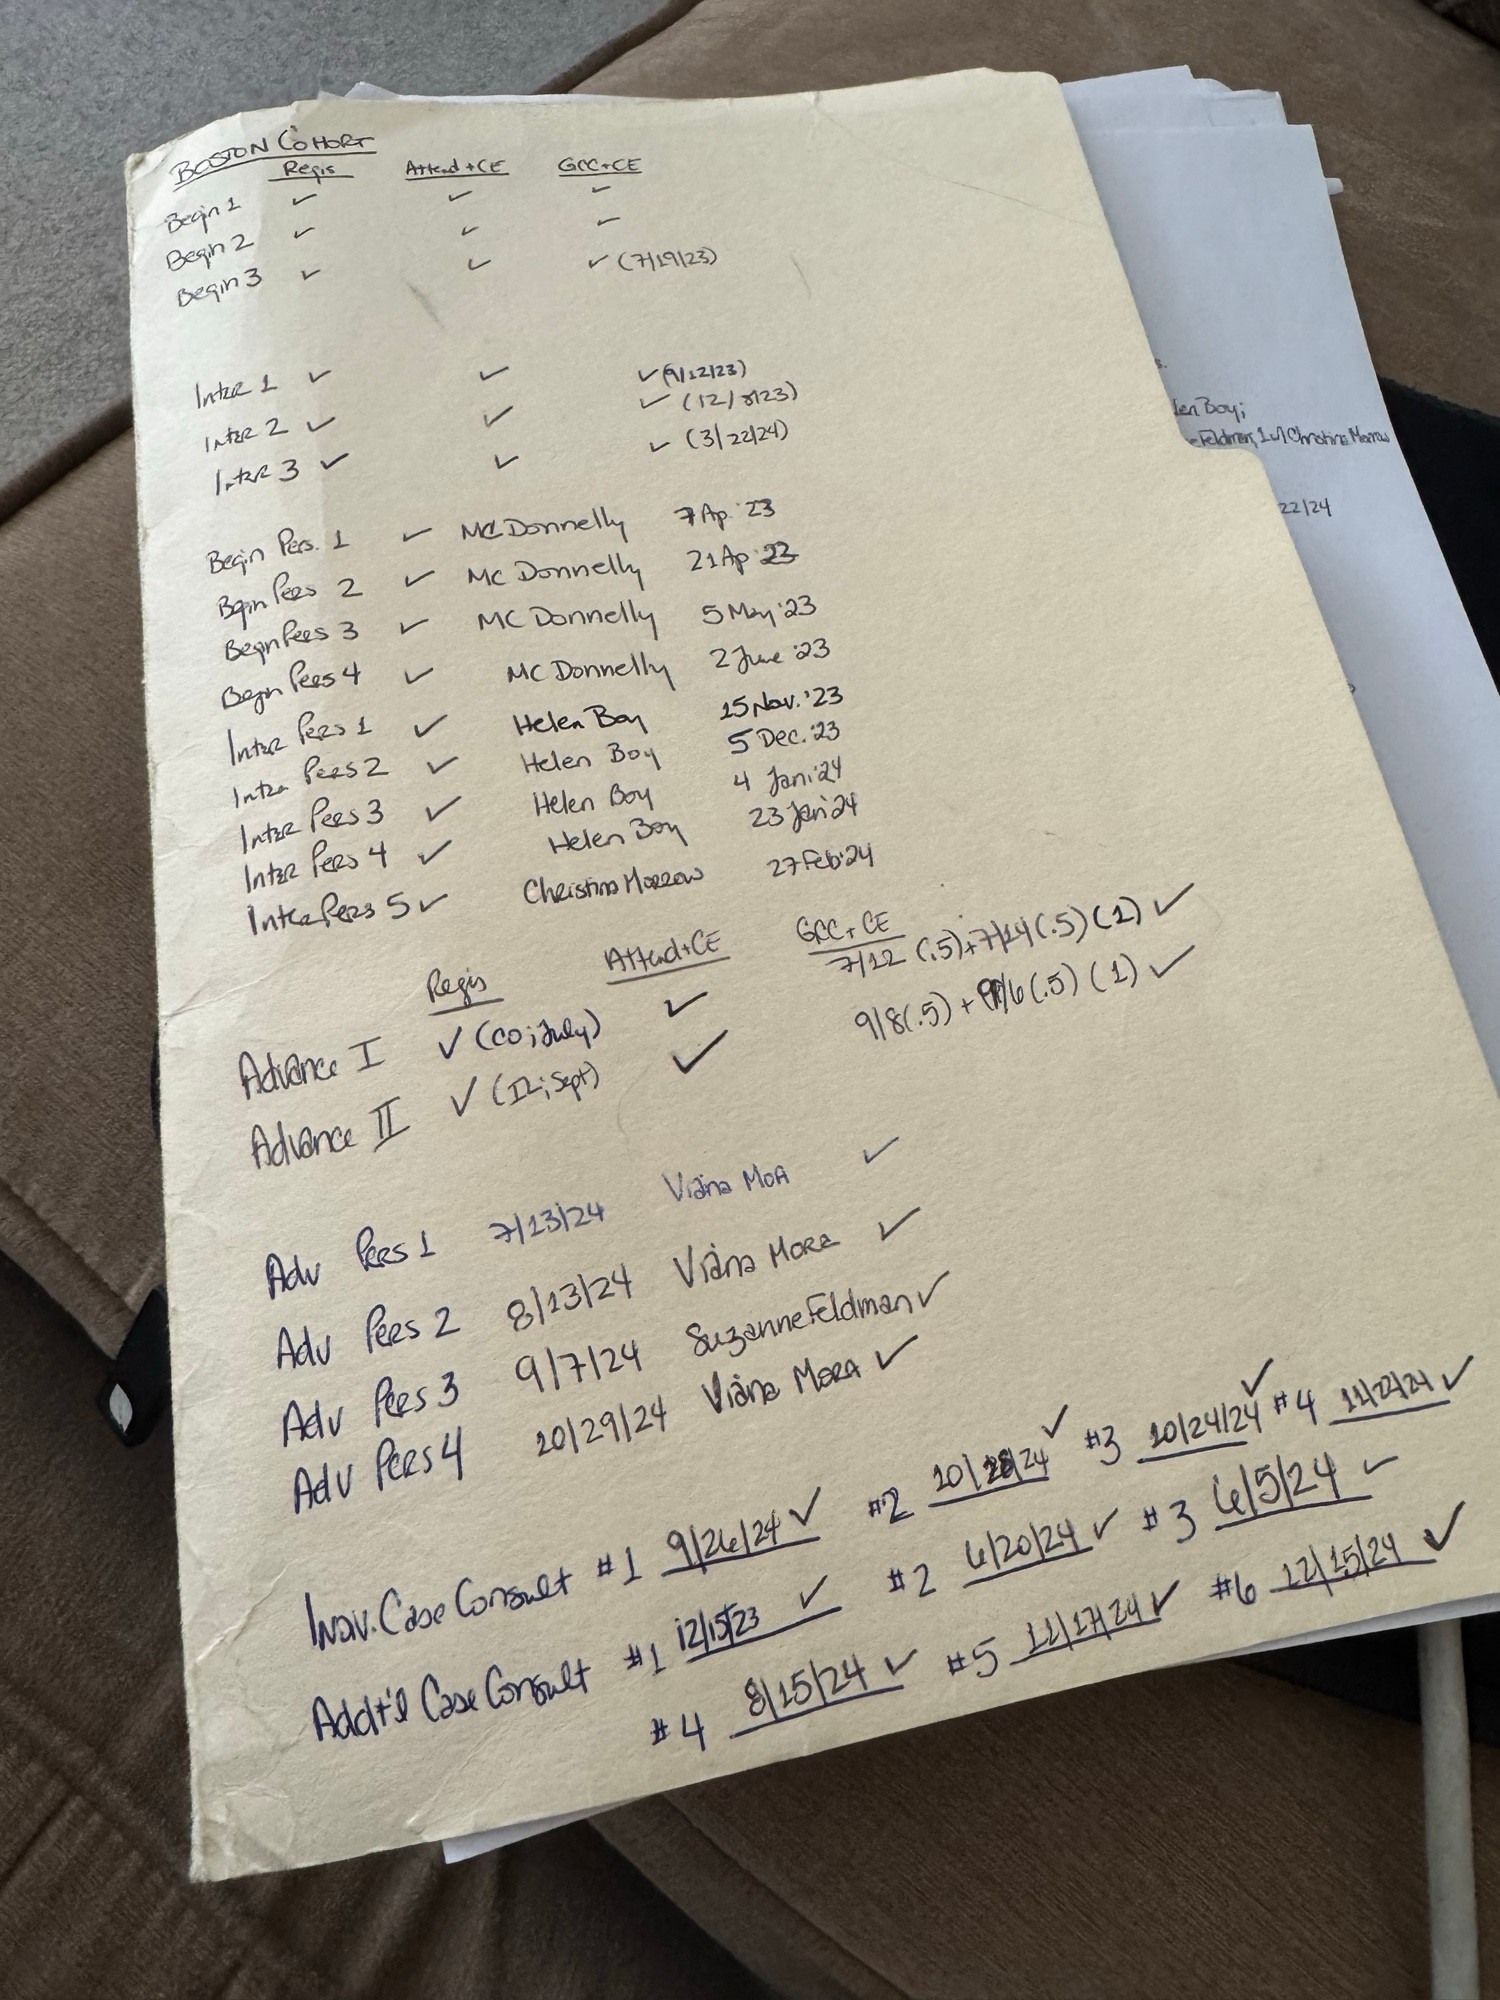 BOSTON COHORT
Regis Attend+CE GCC+CE
Begin 1 ✓ ✓ ✓
Begin 2 ✓ ✓ ✓
Begin 3 ✓ ✓ ✓ (7/19/23)
Inter 1 ✓ ✓ ✓ (9/12/23)
Inter 2 ✓ ✓ ✓ (12/8/23)
Inter 3 ✓ ✓ ✓ (3/22/24)
Begin Pers. 1 ✓ MC Donnelly 7 Ap. '23
Begin Pers 2 ✓ MC Donnelly 21 Ap '23
Begin Pers 3 ✓ MC Donnelly 5 May '23
Begin Pers 4 ✓ MC Donnelly 2 June '23
Inter Pers 1 ✓ Helen Boy 15 Nov. '23
Inter Pers 2 ✓ Helen Boy 5 Dec. '23
Inter Pers 3 ✓ Helen Boy 4 Jan '24
Inter Pers 4 ✓ Helen Boy 23 Jan '24
Inter Pers 5 ✓ Christina Morrow 27 Feb '24
Regis Attend+CE GCC+CE
Advance I ✓ (CO; July) ✓ 7/12 (.5) + 7/14 (.5) (1) ✓
Advance II ✓ (IL; Sept) ✓ 9/8 (.5) + 9/6 (.5) (1) ✓
Adv Pers 1 7/13/24 Viana Mora ✓
Adv Pers 2 8/13/24 Viana Mora ✓
Adv Pers 3 9/7/24 Suzanne Feldman ✓
Adv Pers 4 10/29/24 Viana Mora ✓
Indv. Case Consult #1 9/26/24 ✓ #2 10/ /24 ✓ #3 10/24/24 ✓ #4 ✓
Addt'l Case Consult #1 12/15/23 ✓ #2 6/20/24 ✓ #3 6/5/24 ✓
#4 8/15/24 ✓ #5 11/17/24 ✓ #6 12/15/24 ✓
len Boy;
Feldman, 1 w/ Christina Morrow
22/24